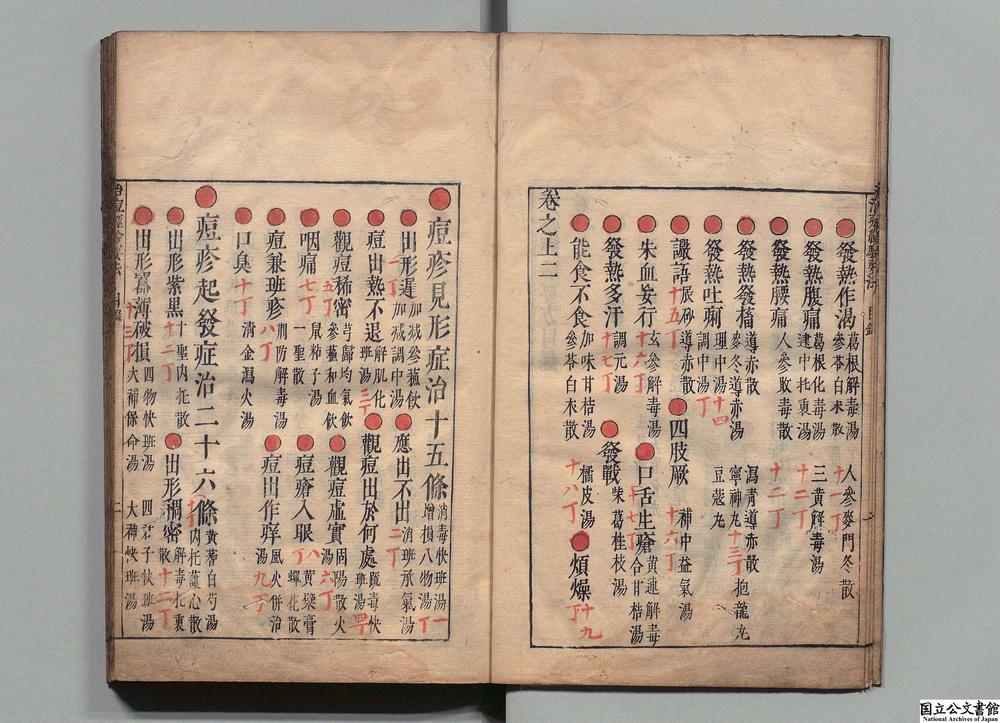 發熱作渴 葛根解毒湯 參苓白朮散 人參麥門冬散 十一丁
發熱腹痛 葛根化毒湯 建中托裏湯 三黄觧毒湯 十二丁
發熱腰痛 人參敗毒散 十二丁
發熱發搐 導赤散 麥冬導赤湯 瀉青導赤散 寧神丸 十三丁 抱龍丸
發熱吐痢 理中湯 調中湯 十四丁 豆蔻丸
譫語 十五丁 辰砂導赤散 四肢厥 十六丁 補中益氣湯
朱血妄行 十六丁 玄參解毒湯 口舌生瘡 十七丁 黄連解毒合甘桔湯
發熱多汗 十七丁 調元湯 發戰 柴葛桂枝湯
能食不食 加味甘桔湯 參苓白朮散 橘皮湯 十八丁 煩燥 十九丁
卷之上二
痘疹見形症治十五條 消毒快班湯 增損八物湯 一丁
出形遲 一丁 加減參蘇飲 加減調中湯 應出不出 二丁 消班承氣湯
痘出熱不退 解肌化班湯 三丁 觀痘出於何處 疏毒快班湯 四丁
觀痘稀密 五丁 芎歸均氣飲 參蘆和血飲 觀痘虛實 固陽散火湯 六丁
咽痛 七丁 鼠粘子湯 一聖散 痘瘡入眼 八丁 黄蘗膏 蟬花散
痘兼班疹 八丁 荆防解毒湯 痘出作痒 風火併治湯 九丁
口臭 十丁 清金瀉火湯
痘疹起發症治二十六條 黄蓍白芍湯 内托護心散
出形紫黑 十二丁 十聖内托散 出形稠密 解毒托裏散 十二丁
出形嫩薄破損 十三丁 四物快班湯 大補保命湯 四君子快班湯 大補快班湯
国立公文書館
National Archives of Japan